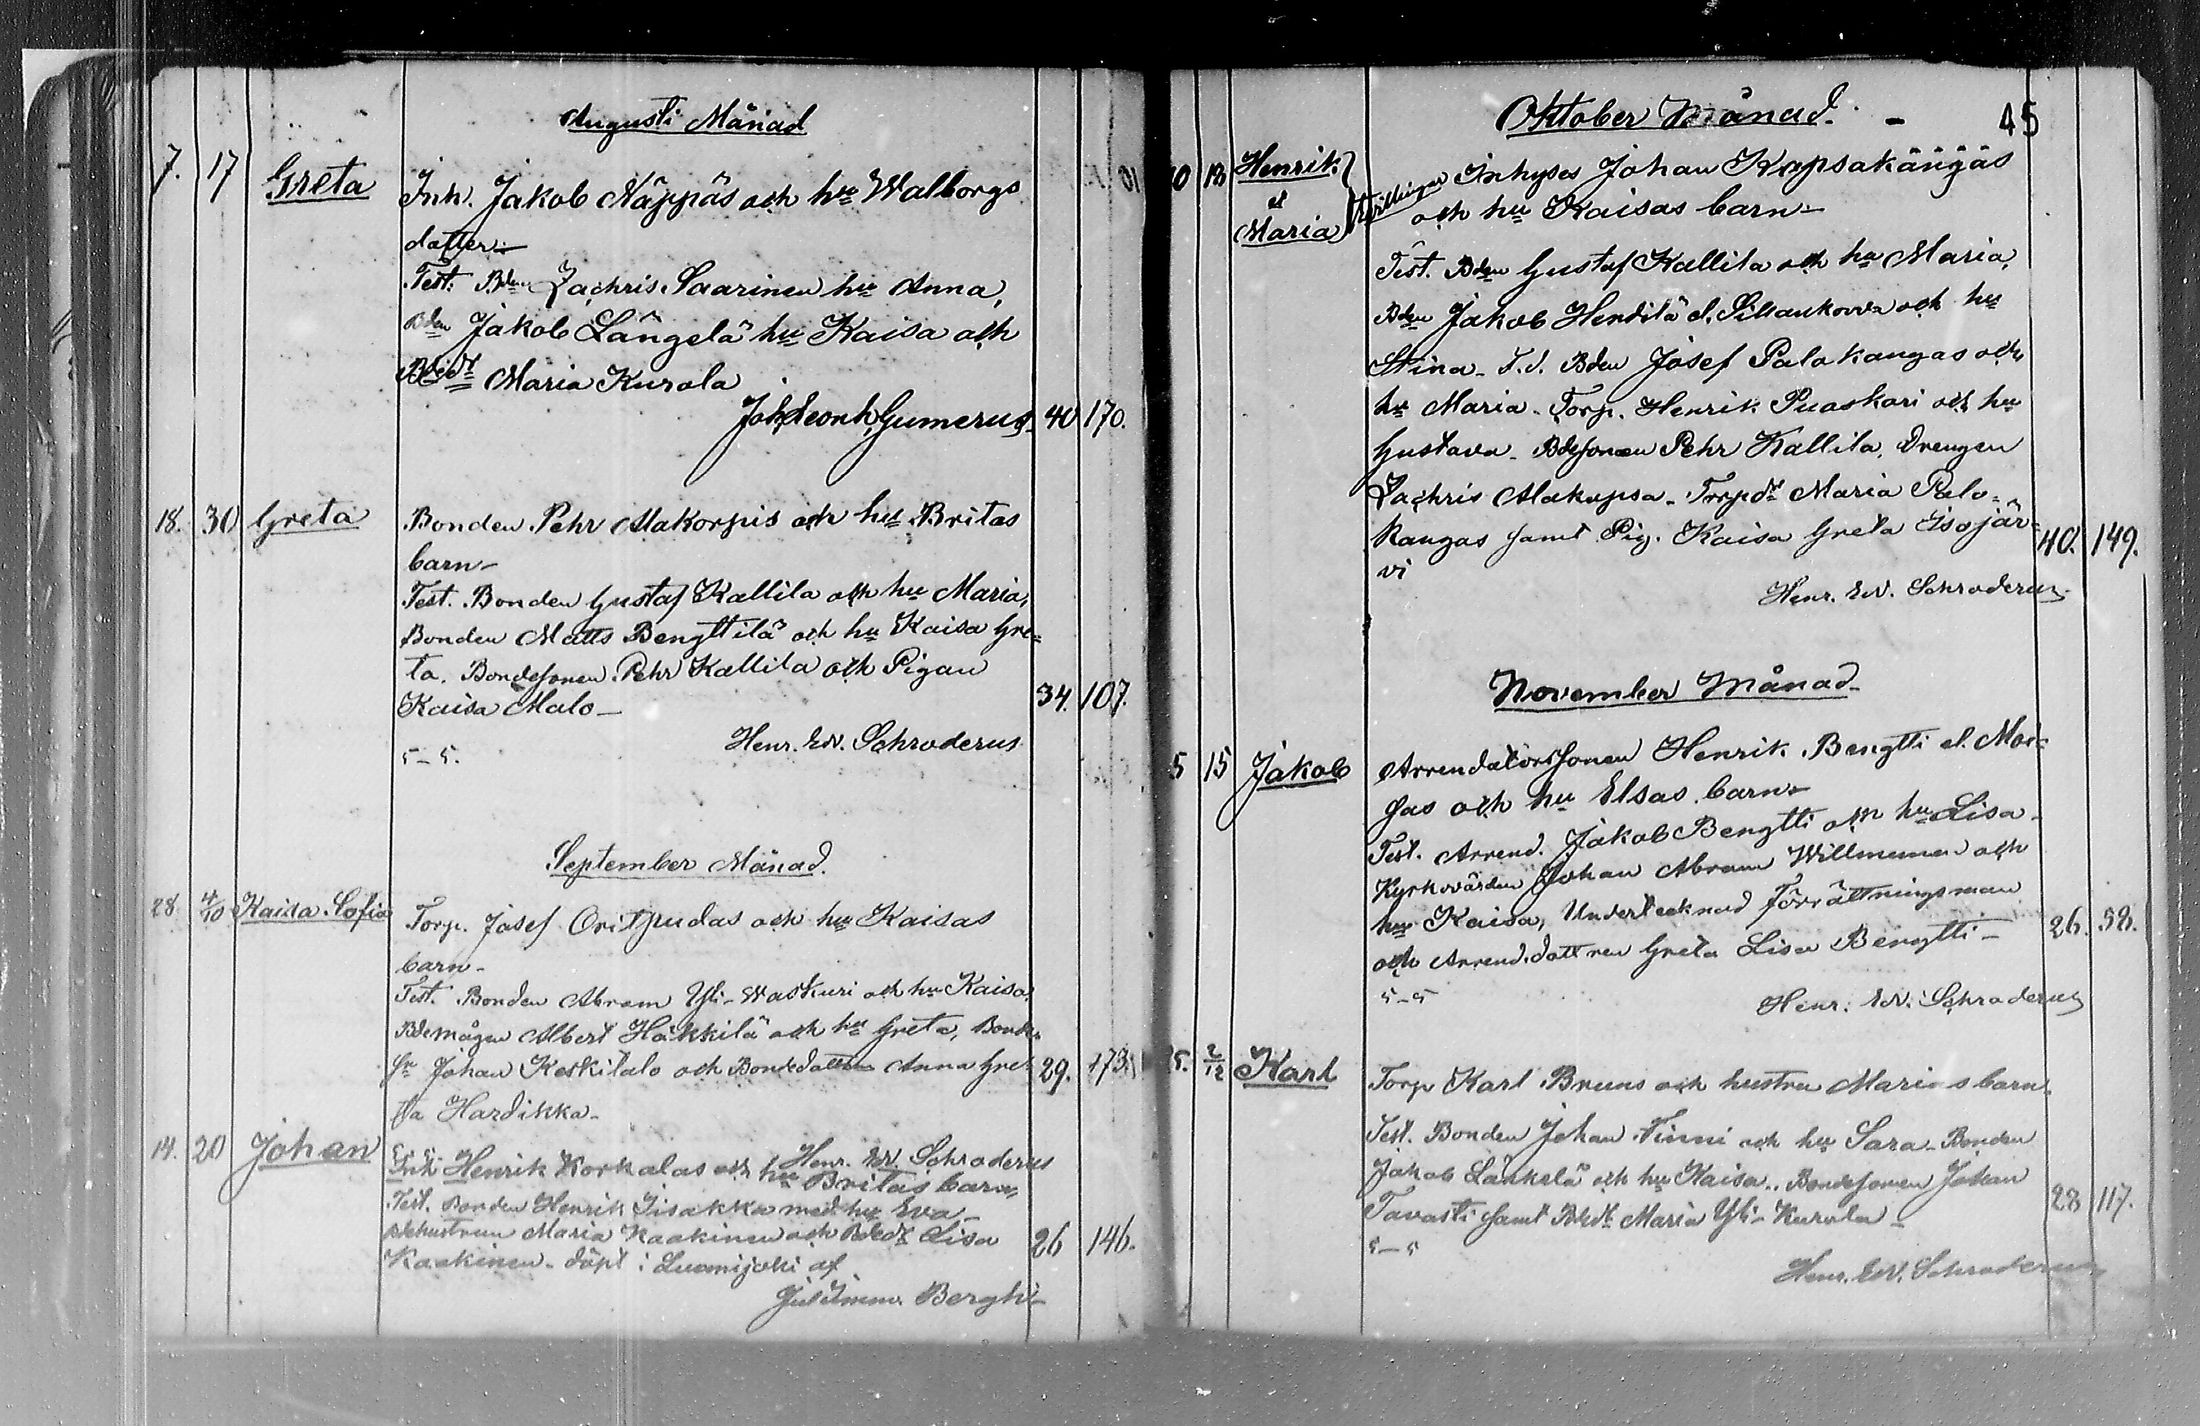 Augusti Månad
7. 17 Greta Inh. Jakob Näppäs och hu Walborgs
dotter.
Test. Bden Zachris Saarinen hu Anna,
Bden Jakob Långelä hu Kaisa och
Bdedr Maria Kurola
Joh. Leonh. Gumerus 40 170.
18. 30 Greta Bonden Pehr Alakorpis och hu Britas
barn
Test. Bonden Gustaf Kallila och hu Maria,
Bonden Matts Bengttilä och hu Kaisa Gre=
ta. Bondesonen Pehr Kallila och Pigan
Kaisa Malo 34. 107.
5-5. Henr. Edv. Schroderus
September Månad.
28 4/10 Kaisa Sofia Torp. Josef Oritpudas och hu Kaisas
barn
Test. Bonden Abram Yli-Waskuri och hu Kaisa,
Bdemågen Albert Häkkilä och hu Greta, Bonde
sn Johan Keskitalo och Bondedottren Anna Gre 29. 173
ta Hardikka
Henr. Edv. Schroderus
14. 20 Johan Inh Henrik Korkalas och hu Britas barn,
Test. Bonden Henrik Iisakka med hu Eva
Bdehustrun Maria Kaakinen och Bdedr Lisa 26 146.
Kaakinen. döpt i Lumijoki af
Jul. Imm. Bergh
Oktober Månad. 45
10 18 Henrik
et
Maria Tvillingar Inhyses Johan Kapsakängäs
och hu Kaisas barn
Test. Bden Gustaf Kallila och hu Maria,
Bden Jakob Hendilä el. Sillankorva och hu
Stina. F.d. Bden Josef Palokangas och
hu Maria. Torp. Henrik Puaskari och hu
Gustava. Bdesonen Pehr Kallila. Drengen
Zachris Alakapsa. Torpdr Maria Palo=
kangas samt Pig. Kaisa Greta Isojär= 40. 149.
vi
Henr. Edv. Schroderus
November Månad
5 15 Jakob Arrendatorssonen Henrik Bengtti el.
och hu Elsas barn
Test. Arrend. Jakob Bengtti och hu Lisa
Kyrkovärden Johan Abram Willmunen och
hu Kaisa, Undertecknad Förrättningsman 26. 58.
och Arrend.dottren Greta Lisa Bengtti
5-5 Henr. Edv. Schroderus
5. 2/12 Karl Torp Karl Bruns och hustru Marias barn
Test. Bonden Johan Finni och hu Sara. Bonden
Jakob Lankelä och hu Kaisa. Bondesonen Johan
Tavasti samt Bdedr Maria Yli-Kurola 28 117.
5-5
Henr. Edv. Schroderus